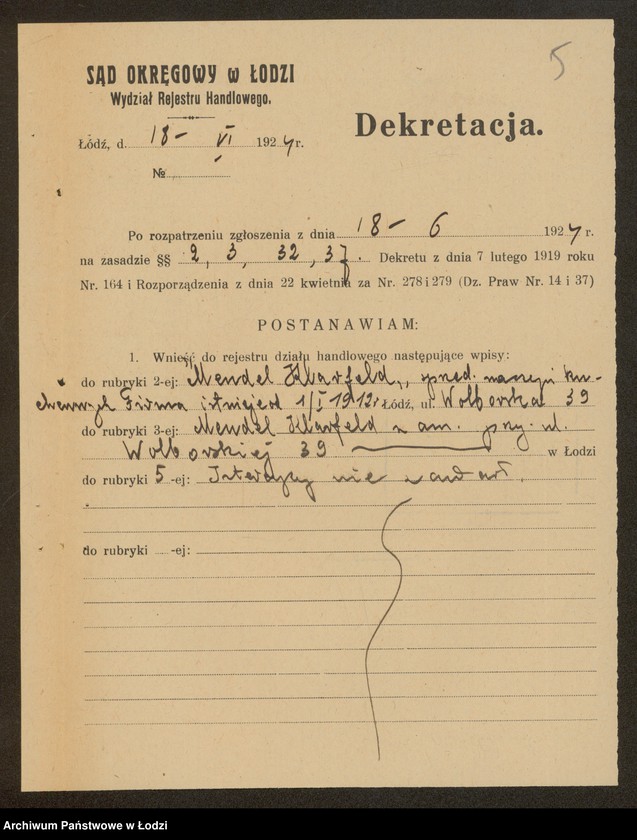 5
SĄD OKRĘGOWY w ŁODZI
Wydział Rejestru Handlowego.
Dekretacja.
Łódź, d. 18 – VI 1924 r.
№
Po rozpatrzeniu zgłoszenia z dnia 18 – 6 1924 r.
na zasadzie §§ 2, 3, 32, 37. Dekretu z dnia 7 lutego 1919 roku
Nr. 164 i Rozporządzenia z dnia 22 kwietnia za Nr. 278 i 279 (Dz. Praw Nr. 14 i 37)
POSTANAWIAM:
1. Wnieść do rejestru działu handlowego następujące wpisy:
do rubryki 2-ej: „Mendel Klarfeld", sprzed. naczyń ku-
chennych Firma istnieje od 1/I 1912 r. Łódź, ul. Wolborska 39
do rubryki 3-ej: Mendel Klarfeld zam. przy ul.
Wolborskiej 39 w Łodzi
do rubryki 5-ej: Intercyzy nie zawarł.
do rubryki -ej:
Archiwum Państwowe w Łodzi